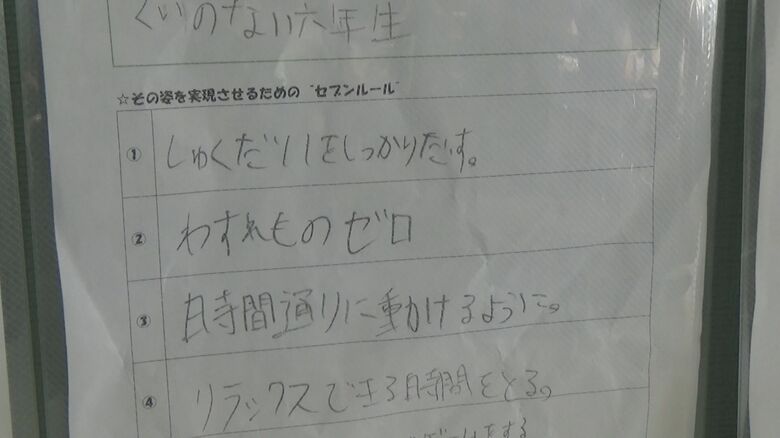 くいのない六年生
☆その姿を実現させるための "セブンルール"
① しゅくだいをしっかりだす。
② わすれものゼロ
③ 時間通りに動けるように。
④ リラックスできる時間をとる。
をする